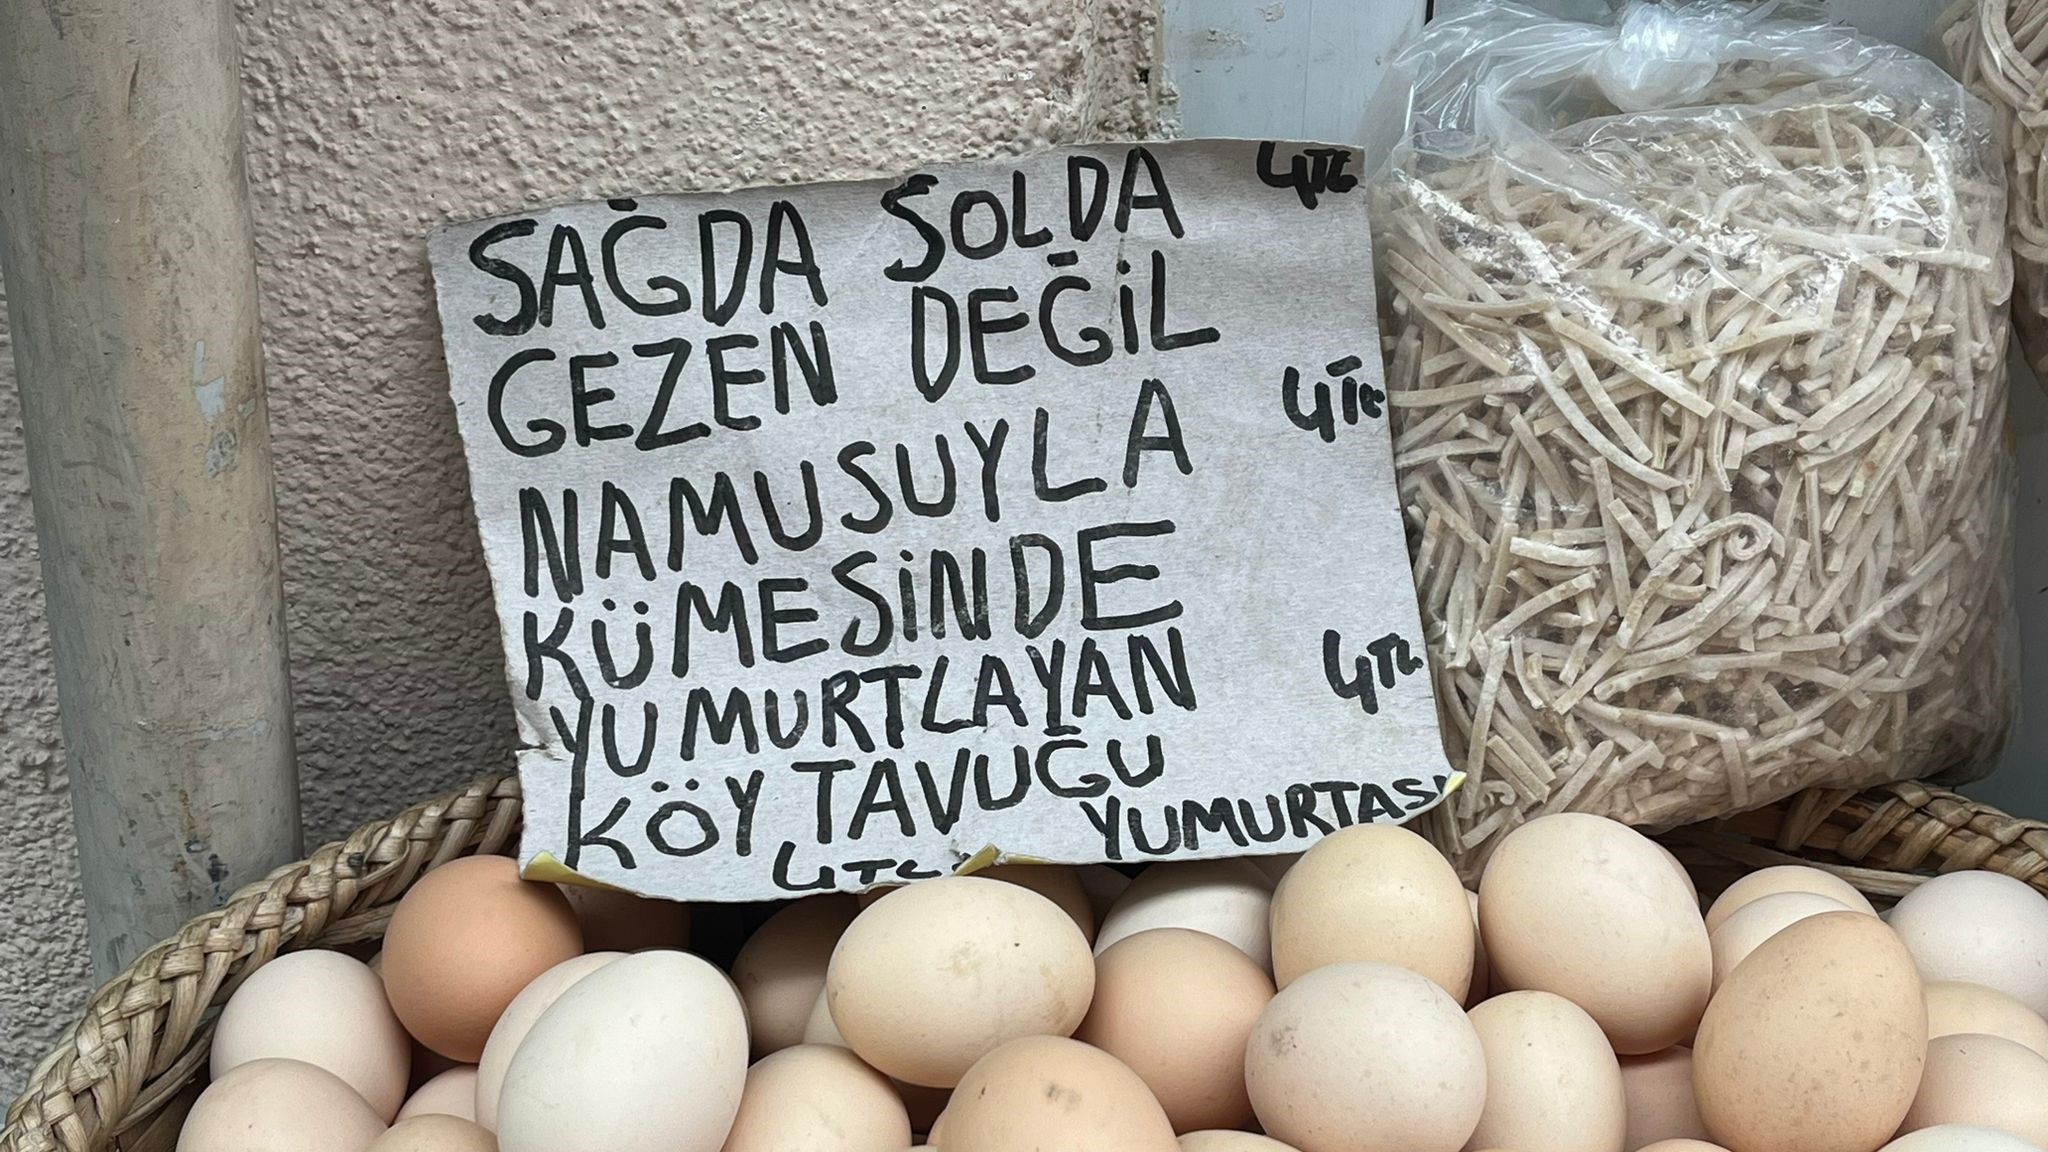 SAĞDA SOLDA 4TL
GEZEN DEĞİL
NAMUSUYLA 4TL
KÜMESİNDE
YUMURTLAYAN 4TL
KÖY TAVUĞU
YUMURTASI
4TL